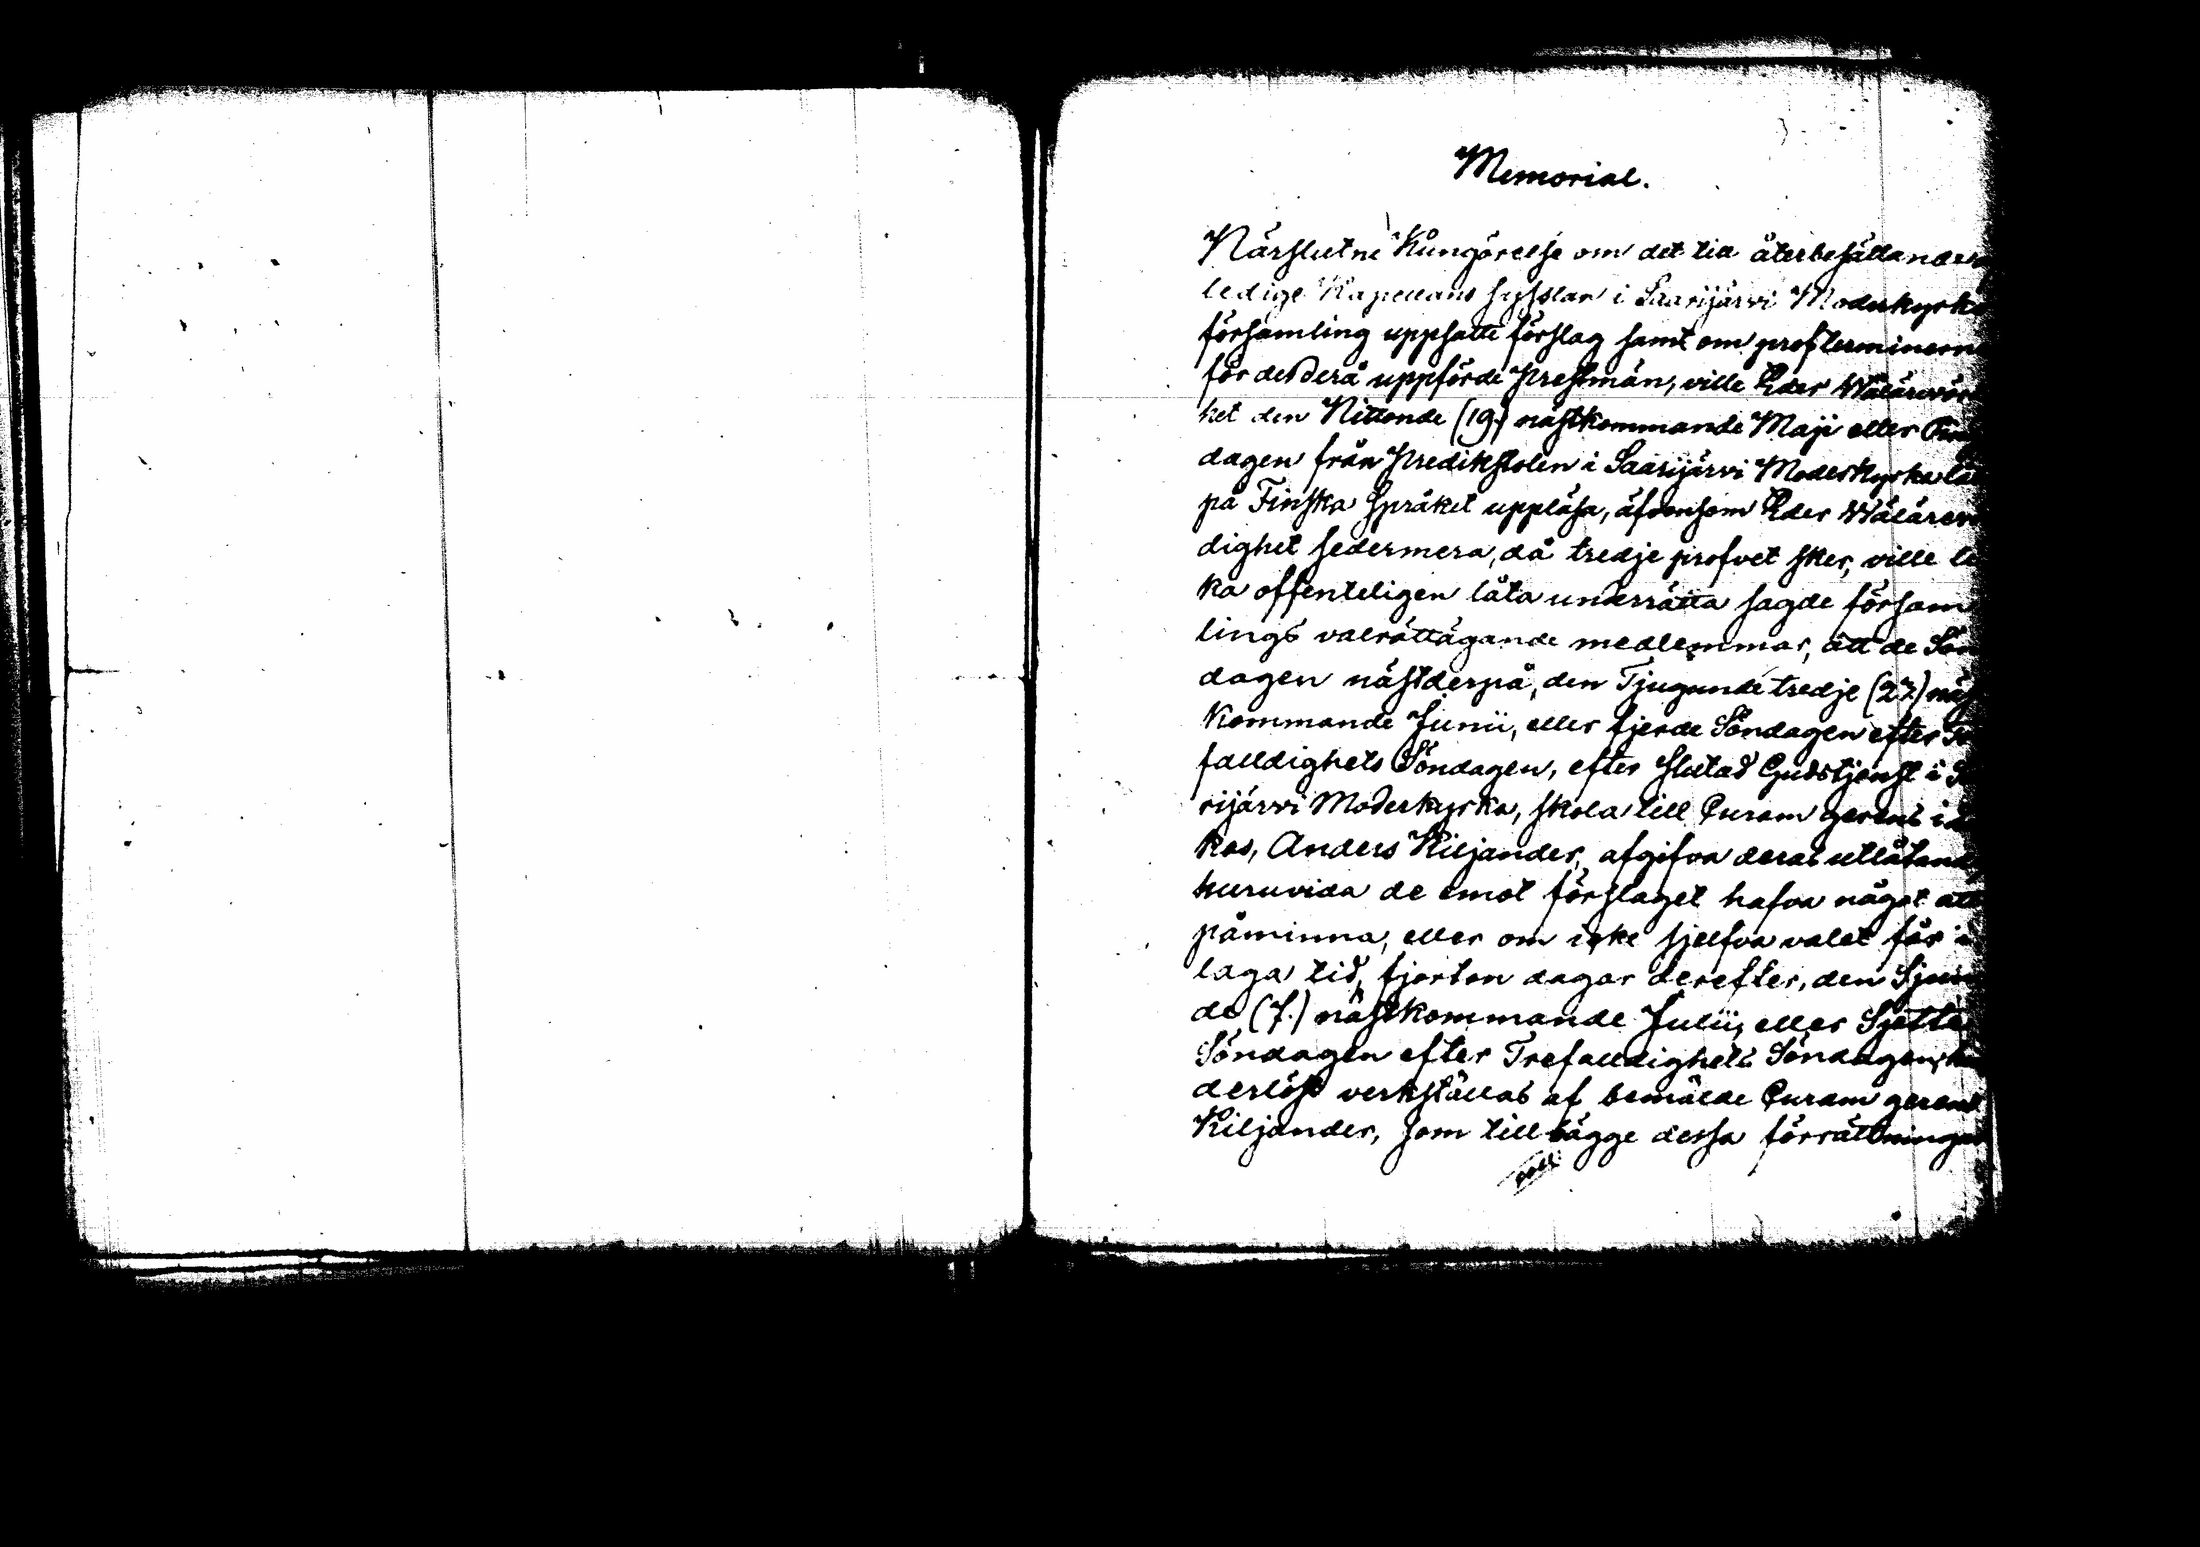 Memorial.
Närslutne Kungörelse om det till återbesättande
ledige Kapellans sysslan i Saarijärvi Moderkyrko
församling uppsatte förslag samt om profterminerne
för de derå uppförde Prestmän, ville Eder Wälärevör
het den Nittonde (19.) nästkommande Maji eller
dagen från Predikstolen i Saarijärvi Moderkyrka lå
på Finska Språket uppläsa, äfvensom Eder Wälärev
dighet sedermera, då tredje profvet sker, ville li
ka offenteligen låta underrätta sagde försam
lings valrättägande medlemmar, att de Sön
dagen nästderpå, den Tjugundetredje (23.) näst
kommande Junii, eller fjerde Söndagen efter Tre
falldighets Söndagen, efter slutad Gudstjenst i Sa
rijärvi Moderkyrka, skola till Curam gerens i
kas, Anders Kiljander, afgifva deras utlåtand
huruvida de emot förslaget hafva något att
påminna, eller om icke sjelfva valet får i
laga tid, fjorton dagar derefter, den Sjun
de (7.) nästkommande Julii, eller Sjette
Söndagen efter Trefalldighets Söndagen, hin
derlöst verkställas af bemälde Curam gerens
Kiljander, som till bägge dessa förrättningar